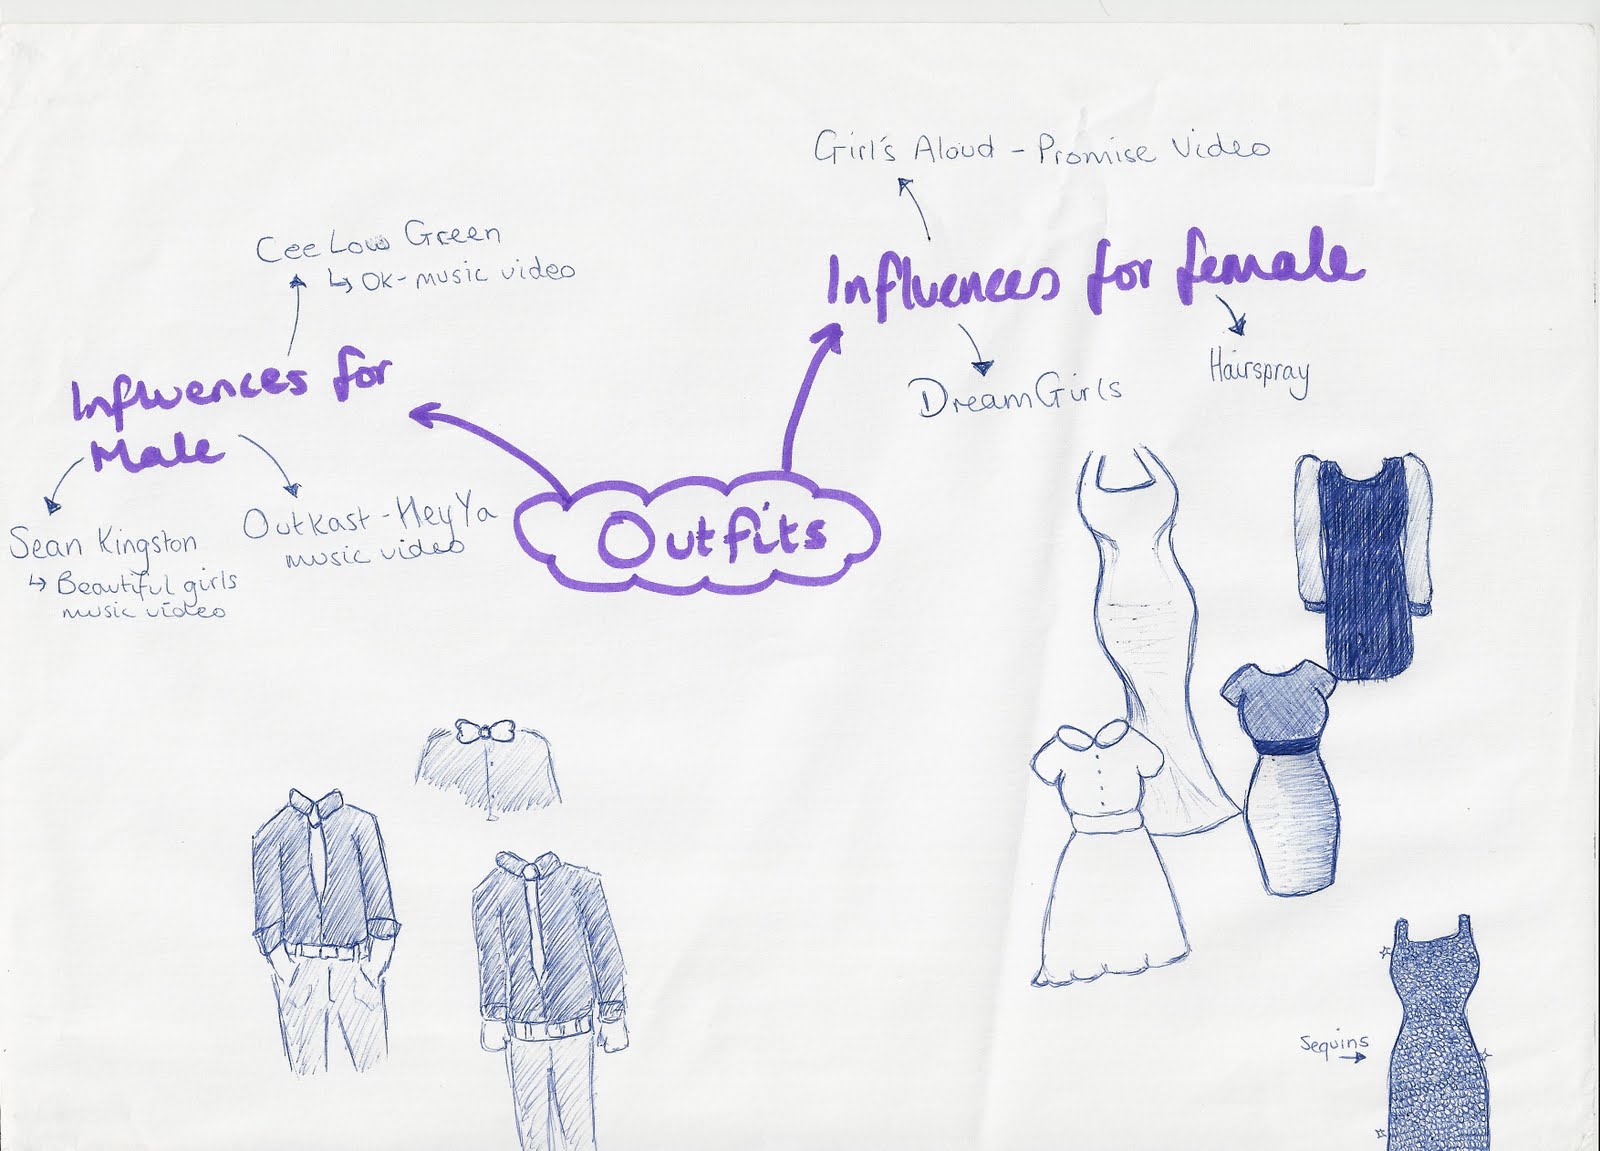 Girl's Aloud - Promise Video
Influences for female
DreamGirls
Hairspray
Cee Low Green
↳ OK - music video
Influences for
Male
Sean Kingston
↳ Beautiful girls
music video
Outkast - Hey Ya
music video
Outfits
Sequins